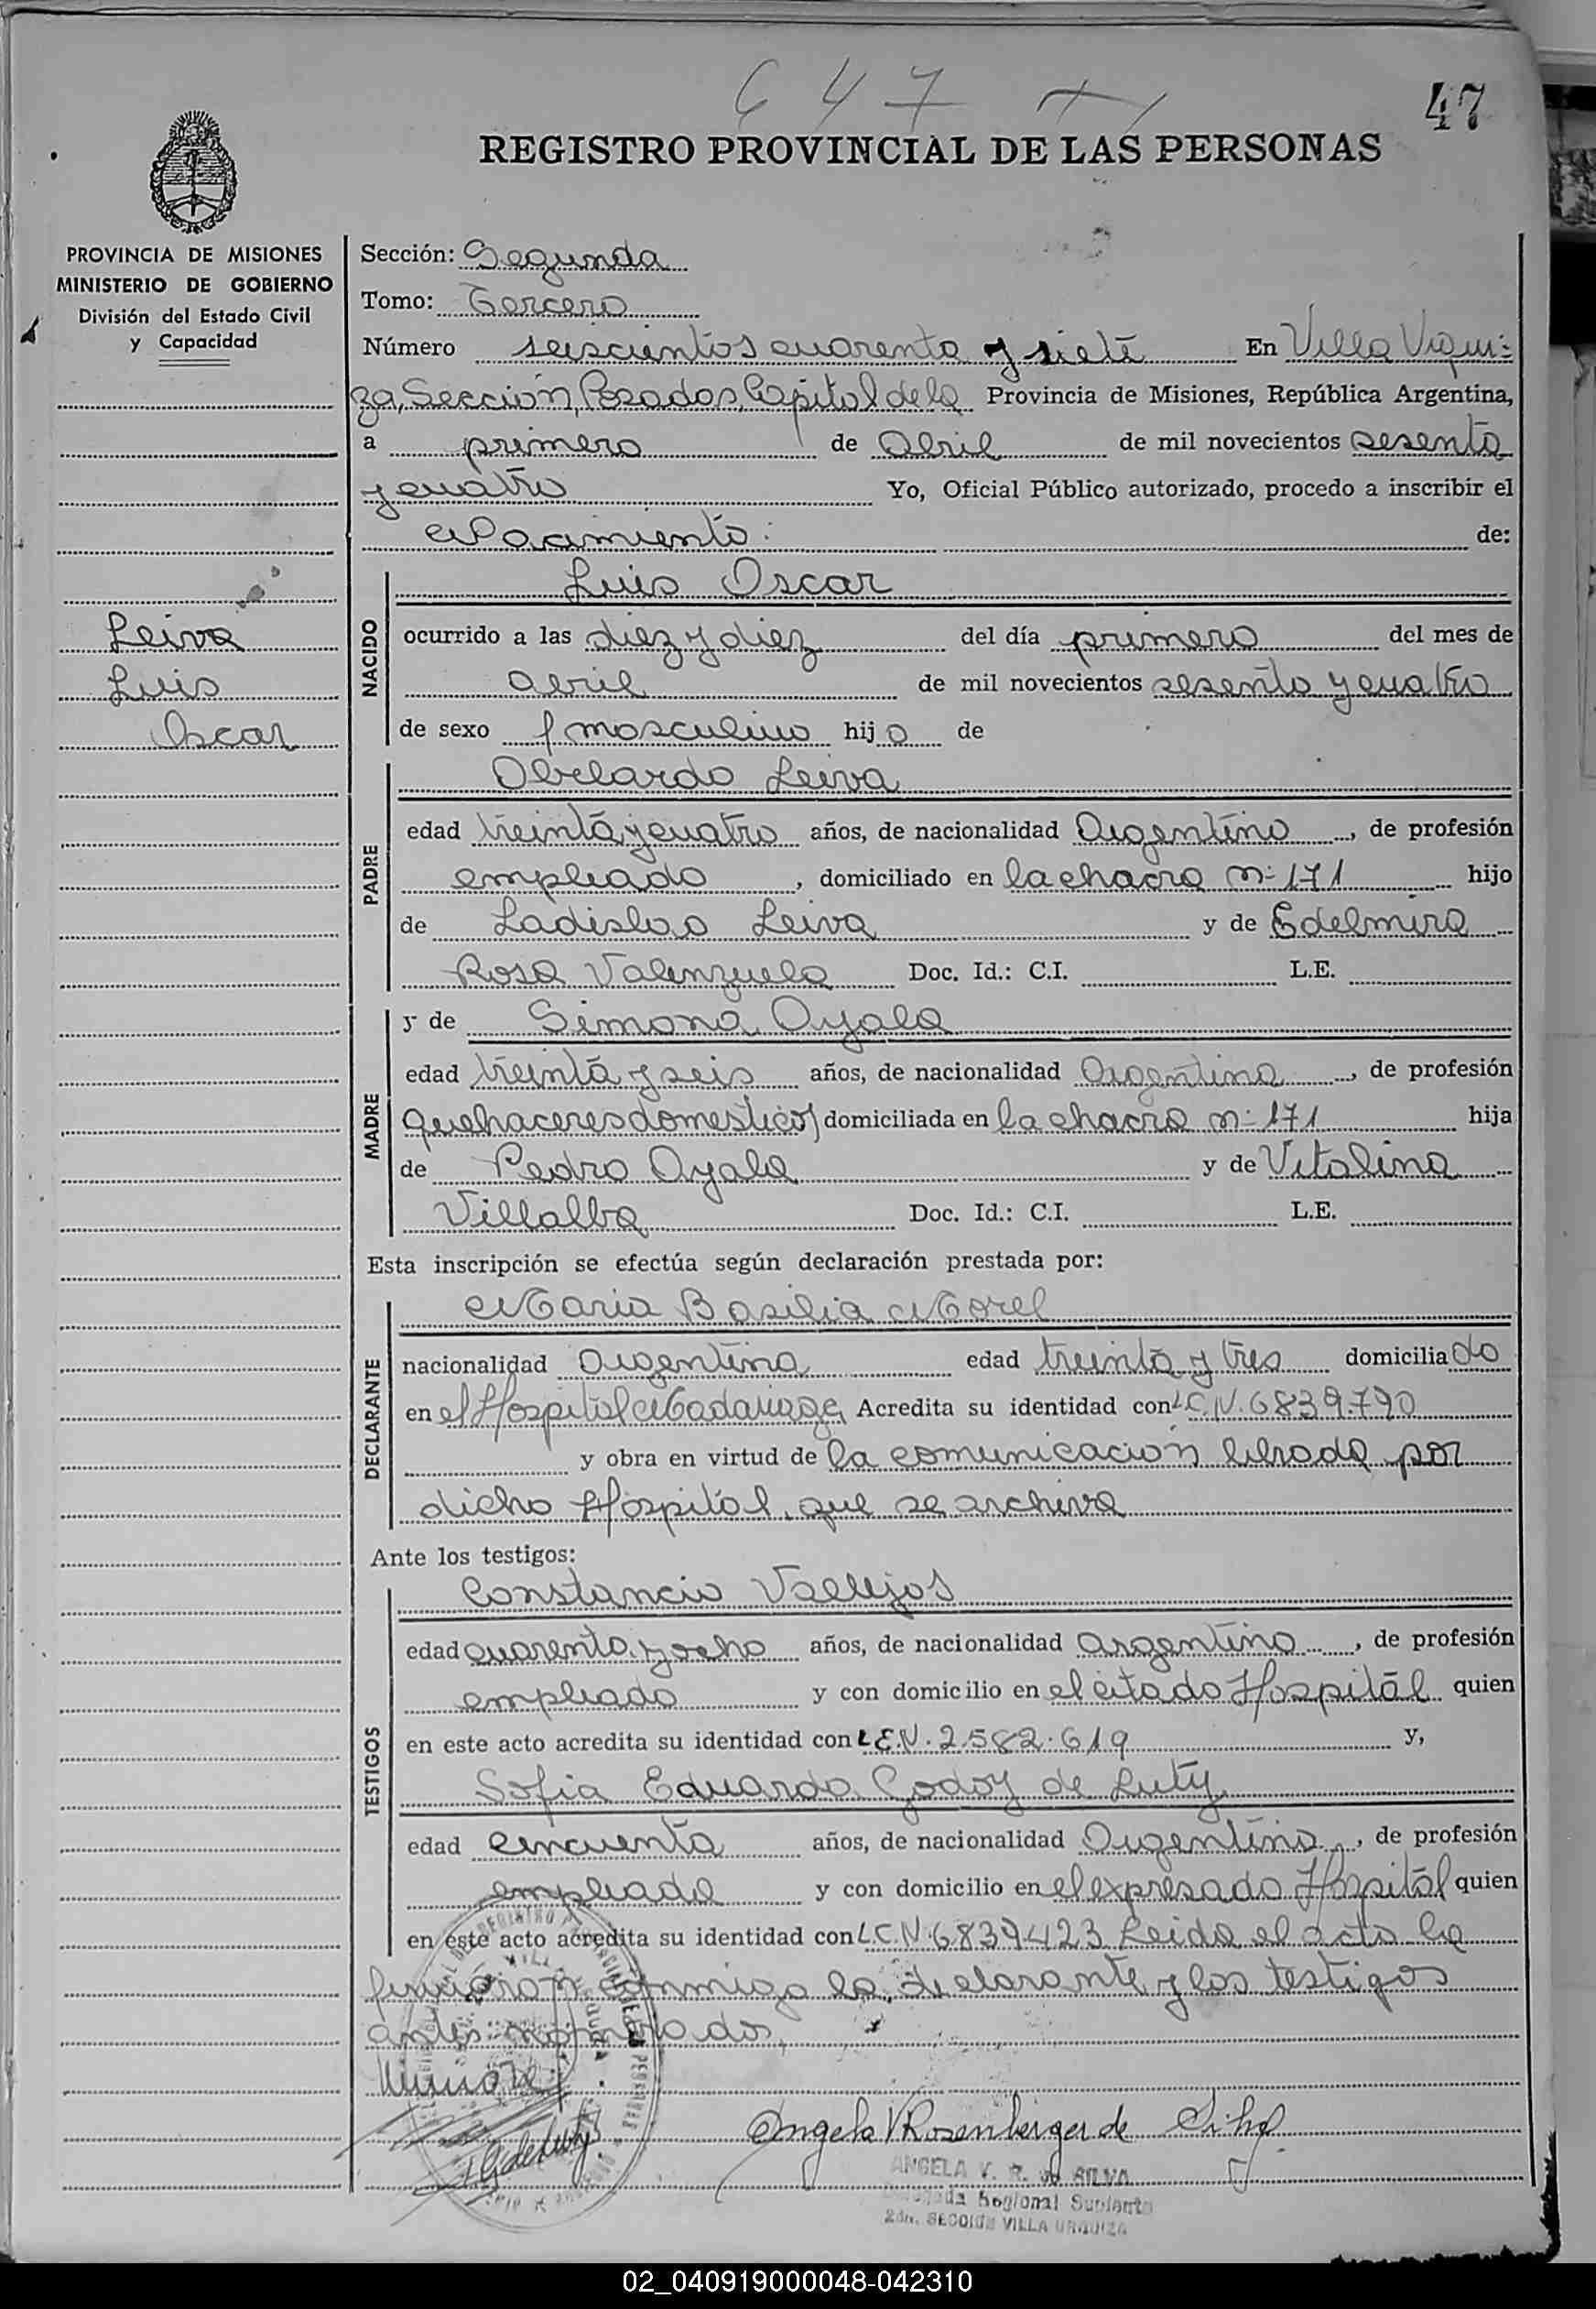 647
47
REGISTRO PROVINCIAL DE LAS PERSONAS
PROVINCIA DE MISIONES
MINISTERIO DE GOBIERNO
División del Estado Civil
y Capacidad
Leiva
Luis
Oscar
Sección: Segunda
Tomo: Tercero
Número seiscientos cuarenta y siete En Villa Urqui-
za, Sección, Posadas, Capital de la Provincia de Misiones, República Argentina,
a primero de Abril de mil novecientos sesenta
y cuatro Yo, Oficial Público autorizado, procedo a inscribir el
Nacimiento: de:
NACIDO
Luis Oscar
ocurrido a las diez y diez del día primero del mes de
abril de mil novecientos sesenta y cuatro
de sexo masculino hijo de
PADRE
Abelardo Leiva
edad treinta y cuatro años, de nacionalidad Argentino, de profesión
empleado, domiciliado en la chacra nº 171 hijo
de Ladislao Leiva y de Edelmira
Rosa Valenzuela Doc. Id.: C.I. L.E.
MADRE
y de Simona Ayala
edad treinta y seis años, de nacionalidad Argentina, de profesión
quehaceres domesticos domiciliada en la chacra nº 171 hija
de Pedro Ayala y de Vitalina
Villalba Doc. Id.: C.I. L.E.
Esta inscripción se efectúa según declaración prestada por:
DECLARANTE
Maria Basilia Morel
nacionalidad argentina edad treinta y tres domiciliado
en el Hospital Madariaga, Acredita su identidad con L.C.N. 6839.790
y obra en virtud de la comunicación librada por
dicho Hospital, que se archiva
Ante los testigos:
TESTIGOS
Constancio Vallejos
edad cuarenta y ocho años, de nacionalidad argentino, de profesión
empleado y con domicilio en el citado Hospital quien
en este acto acredita su identidad con L.E.N. 2.582.619 y,
Sofia Eduarda Godoy de Luty
edad cincuenta años, de nacionalidad Argentina, de profesión
empleada y con domicilio en el expresado Hospital quien
en este acto acredita su identidad con L.C.N. 6839423 Leida el acta la
firmaron conmigo la declarante y los testigos
antes nombrados
Angela V Rosenberger de Silva
ANGELA V. R. de SILVA
Delegada Regional Suplente
2da. SECCION VILLA URQUIZA
02_040919000048-042310